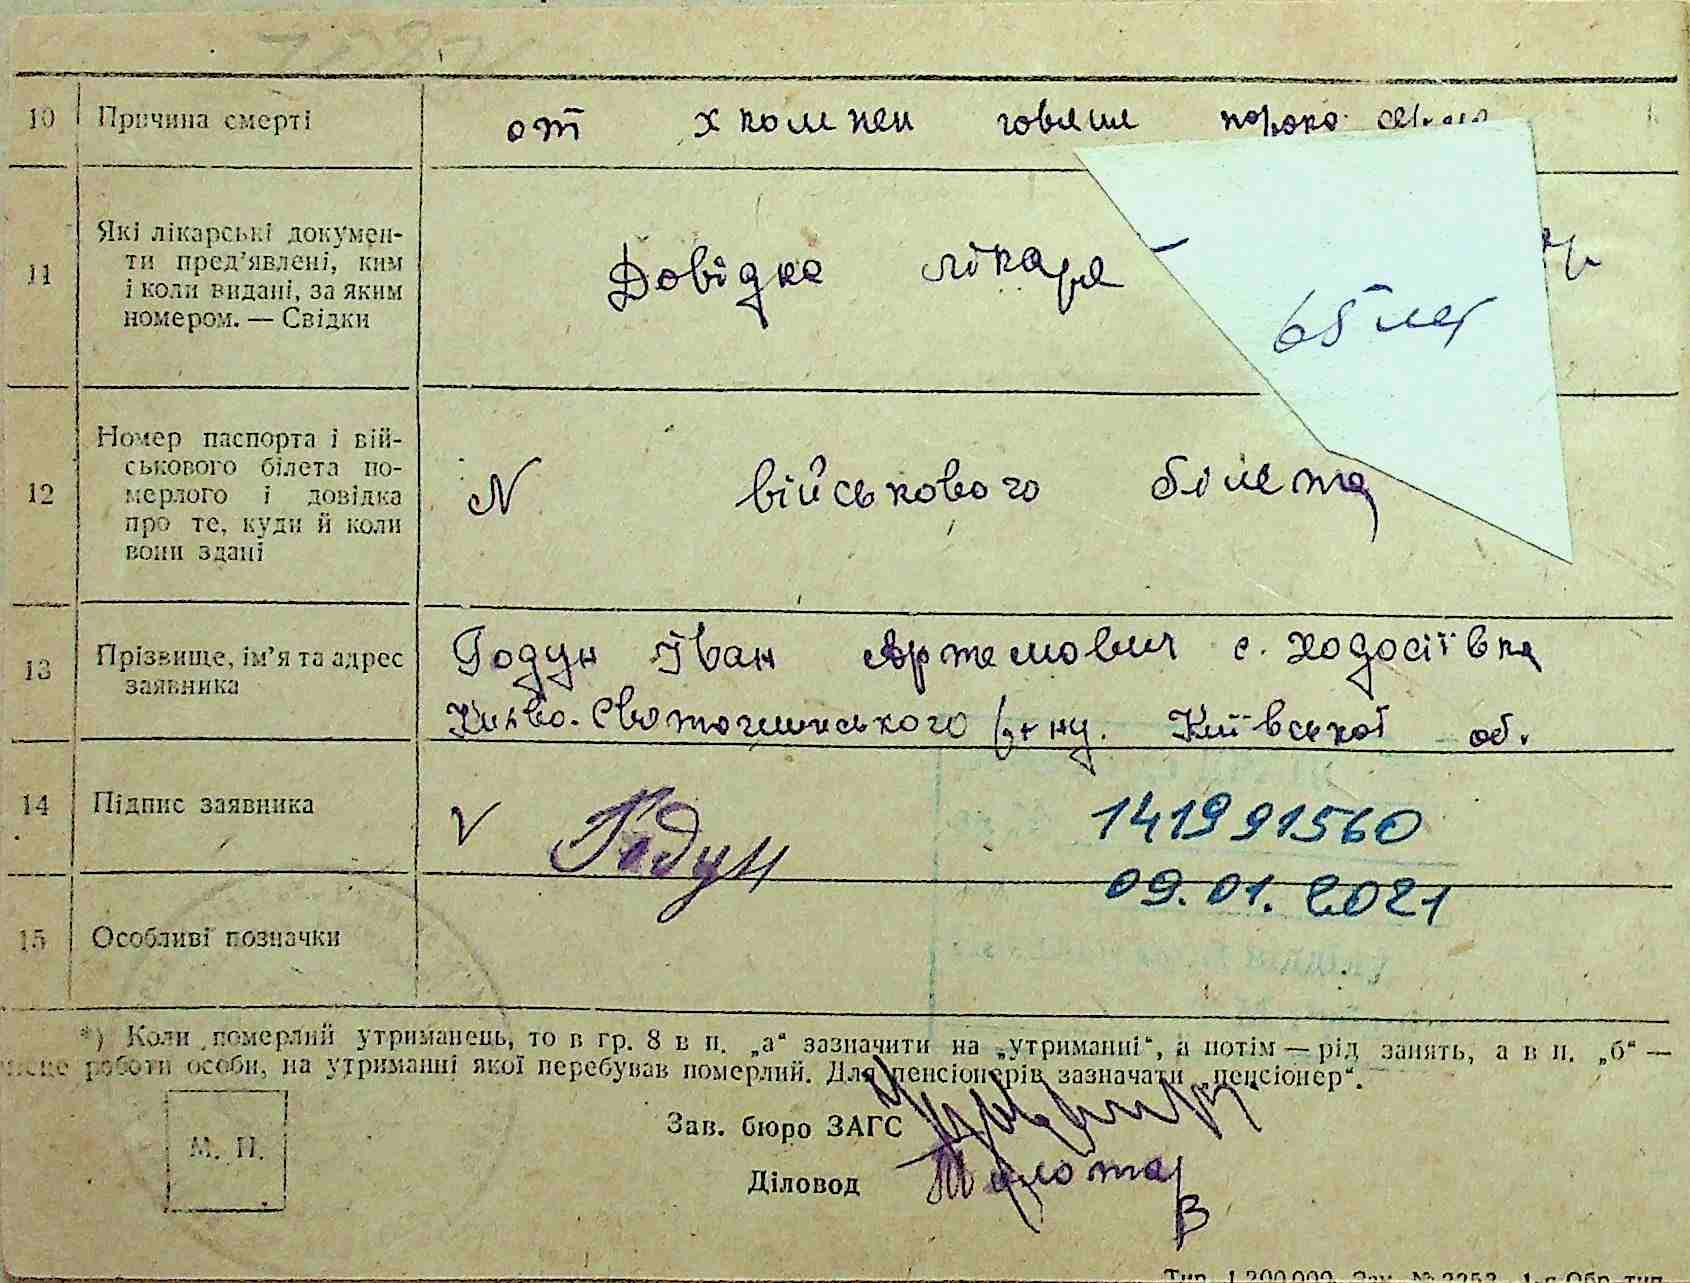 10 Причина смерті от
11 Які лікарські докумен-
ти пред'явлені, ким
і коли видані, за яким
номером. — Свідки
Довідка лікаря
65 лет
12 Номер паспорта і вій-
ськового білета по-
мерлого і довідка
про те, куди й коли
вони здані
N військового білета
13 Прізвище, ім'я та адрес
заявника
Годун Іван Артемович с. Ходосіївка
Києво-Святошинського р-ну. Київської об.
14 Підпис заявника V Годун 141991560
09.01.2021
15 Особливі позначки
*) Коли померлий утриманець, то в гр. 8 в п. „а“ зазначити на „утриманні“, а потім — рід занять, а в п. „б“ —
роботи особи, на утриманні якої перебував померлий. Для пенсіонерів зазначати „пенсіонер“.
М. П.
Зав. бюро ЗАГС
Діловод